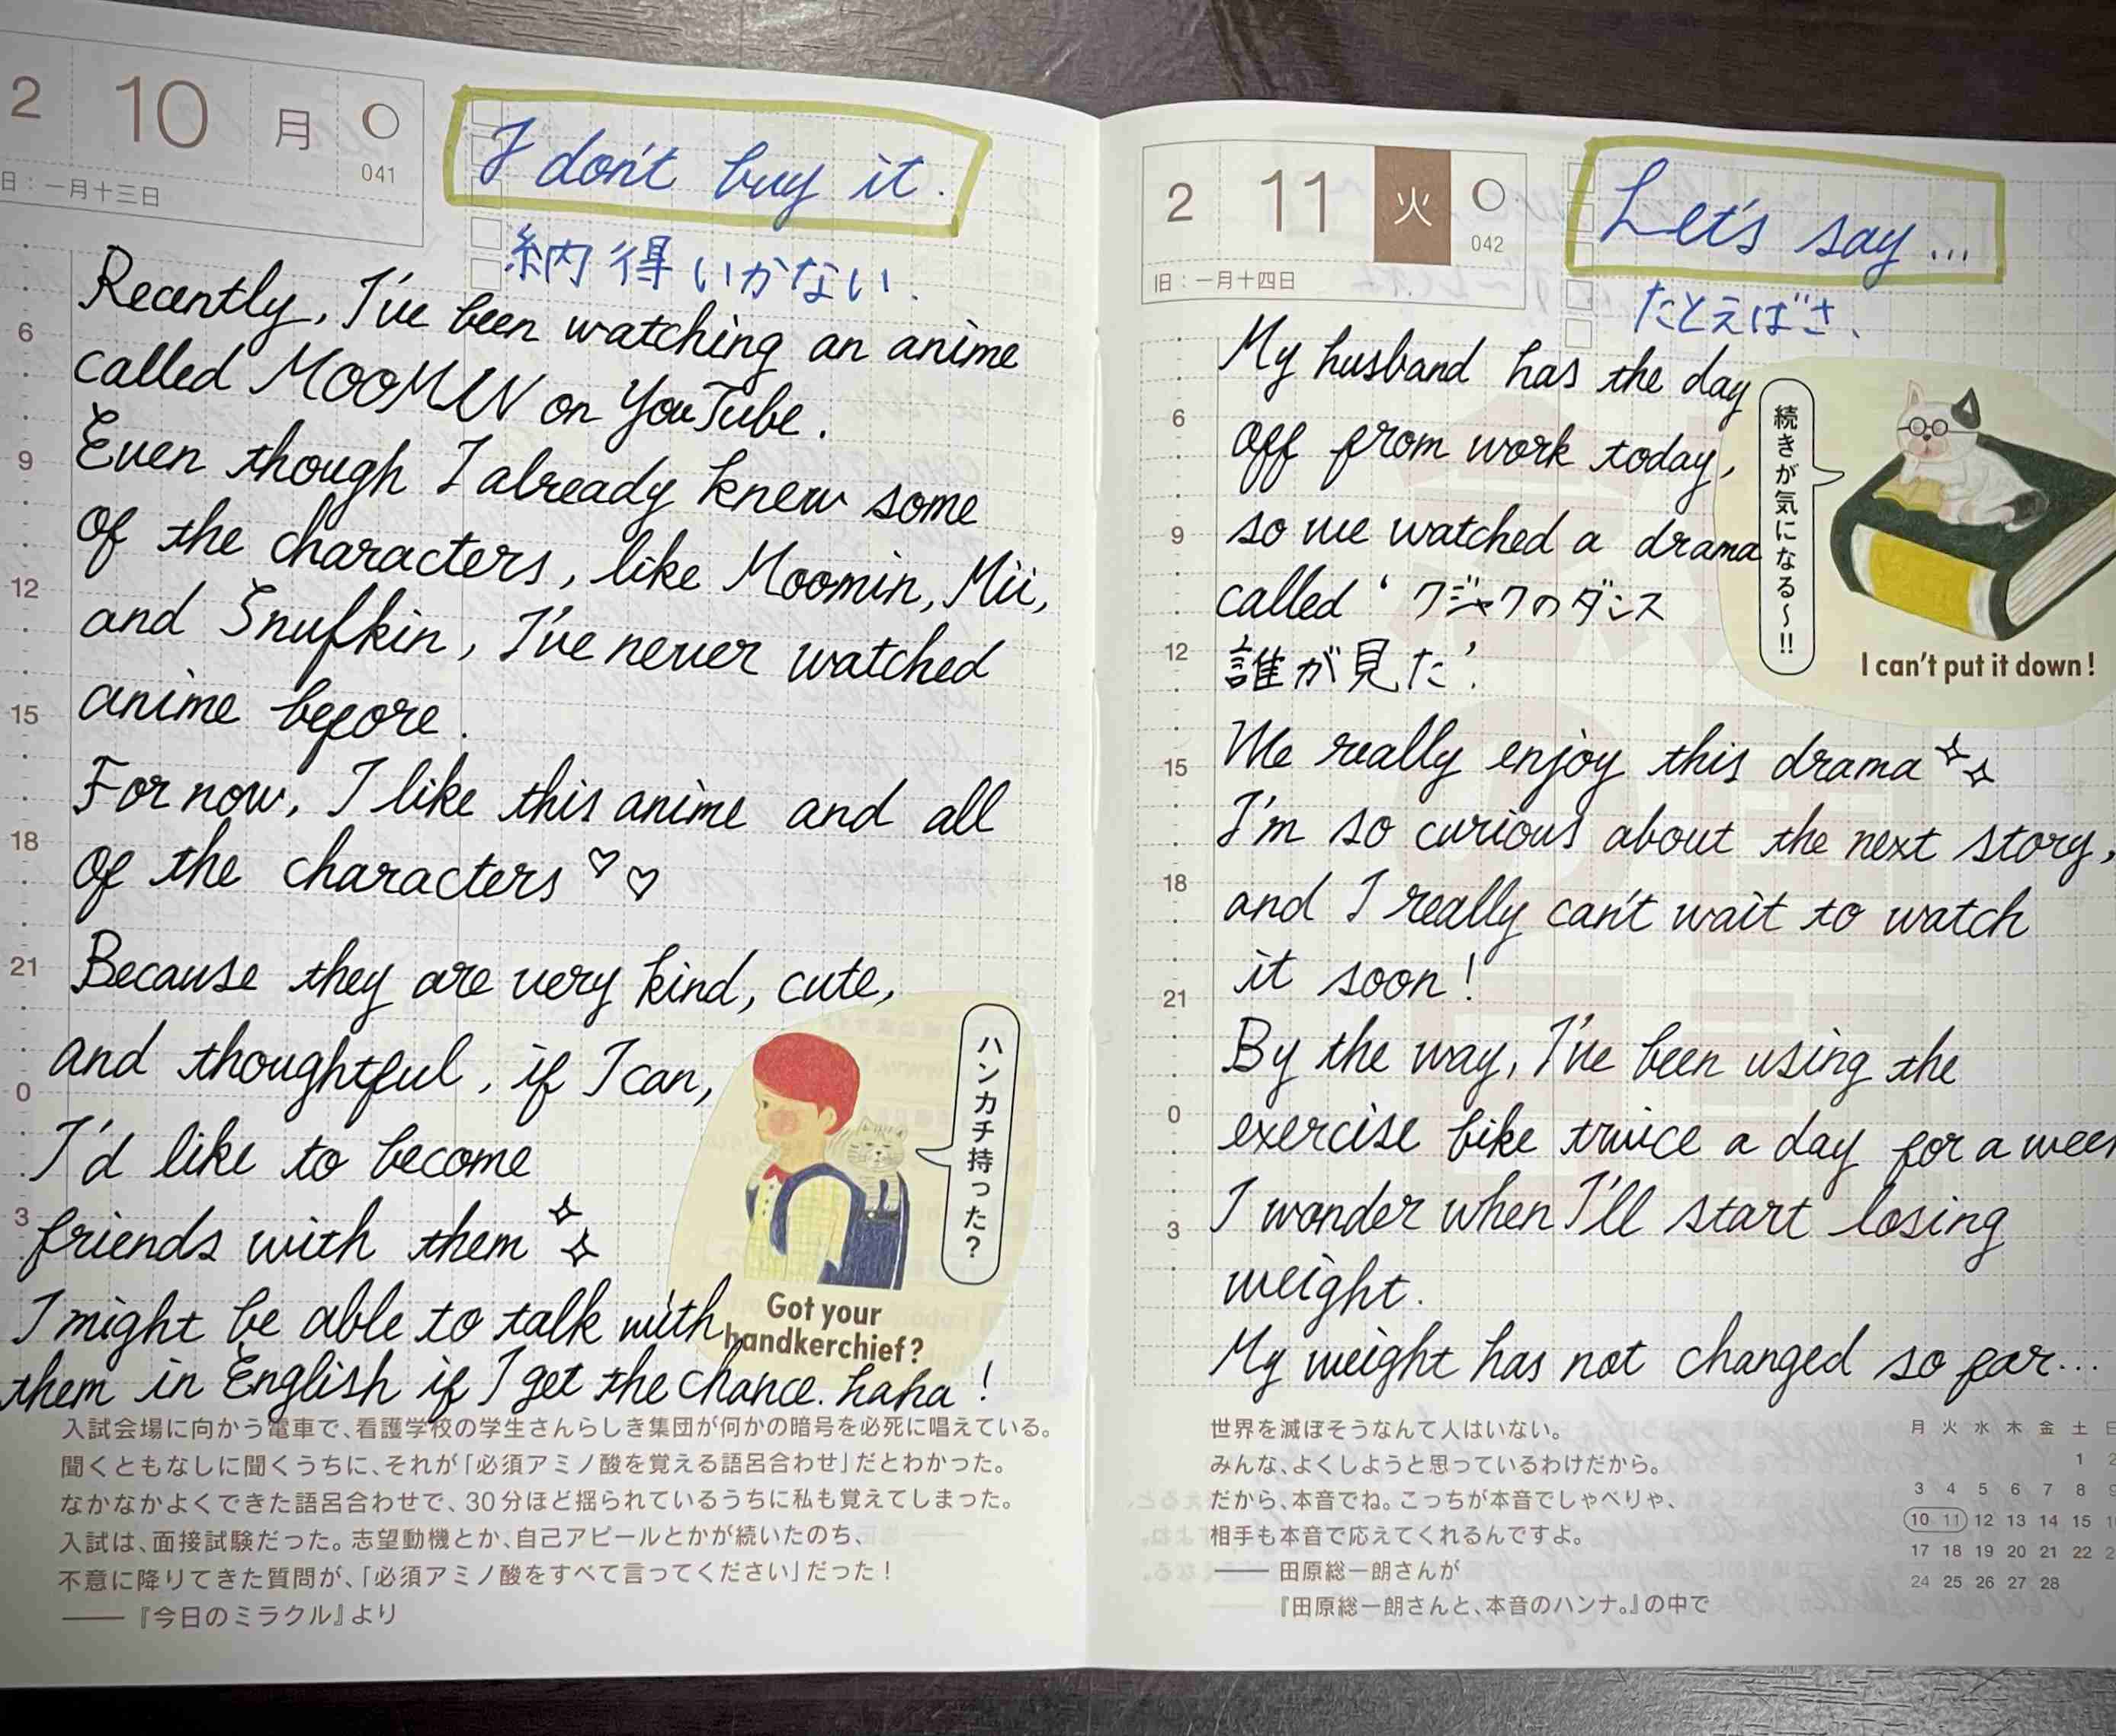 2 10 月
041
日：一月十三日
I don't buy it.
納得いかない.
Recently, I've been watching an anime
called MOOMIN on YouTube.
Even though I already knew some
of the characters, like Moomin, Mii,
and Snufkin, I've never watched
anime before.
For now, I like this anime and all
of the characters ♡♡
Because they are very kind, cute,
and thoughtful, if I can,
I'd like to become
friends with them
I might be able to talk with
them in English if I get the chance. haha!
6
9
12
15
18
21
0
3
ハンカチ持った?
Got your
handkerchief?
入試会場に向かう電車で、看護学校の学生さんらしき集団が何かの暗号を必死に唱えている。
聞くともなしに聞くうちに、それが「必須アミノ酸を覚える語呂合わせ」だとわかった。
なかなかよくできた語呂合わせで、30分ほど揺られているうちに私も覚えてしまった。
入試は、面接試験だった。志望動機とか、自己アピールとかが続いたのち、
不意に降りてきた質問が、「必須アミノ酸をすべて言ってください」だった！
――『今日のミラクル』より
2 11 火
042
旧：一月十四日
Let's say...
たとえばさ、
My husband has the day
off from work today,
so we watched a drama
called 'クジャクのダンス
誰が見た'.
We really enjoy this drama
I'm so curious about the next story,
and I really can't wait to watch
it soon!
By the way, I've been using the
exercise bike twice a day for a week
I wonder when I'll start losing
weight.
My weight has not changed so far...
6
9
12
15
18
21
0
3
続きが気になる〜!!
I can't put it down!
世界を滅ぼそうなんて人はいない。
みんな、よくしようと思っているわけだから。
だから、本音でね。こっちが本音でしゃべりゃ、
相手も本音で応えてくれるんですよ。
―― 田原総一朗さんが
『田原総一朗さんと、本音のハンナ。』の中で
月 火 水 木 金 土 日
1 2
3 4 5 6 7 8 9
10 11 12 13 14 15
17 18 19 20 21 22
24 25 26 27 28